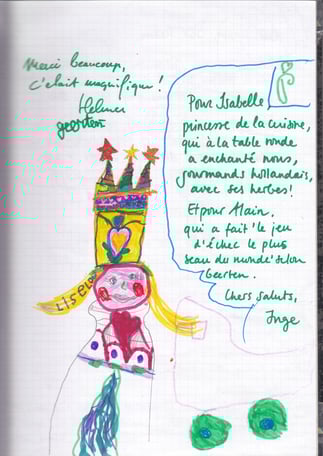 Merci beaucoup,
c'était magnifique!
Helmer
geerten
Pour Isabelle
princesse de la cuisine,
qui à la table ronde
a enchanté nous,
gourmands hollandais,
avec ses herbes!
Et pour Alain.
qui a fait 'le jeu
d'échec le plus
beau du monde' selon
Geerten.
Chers saluts,
Inge